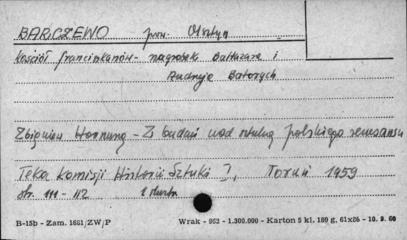 BARCZEWO pow. Olsztyn
Kościół franciszkanów - nagrobek Baltazara i
Andrzeja Batorych
Zbigniew Hornung - Z badań nad rzeźbą polskiego renesansu
Teka Komisji Historii Sztuki I, Toruń 1959
str. 111-112
B-15b - Zam. 1661/ZW/P Wrak - 952 - 1.300.000 - Karton 5 kl. 189 g, 61x86 - 10. 9. 60